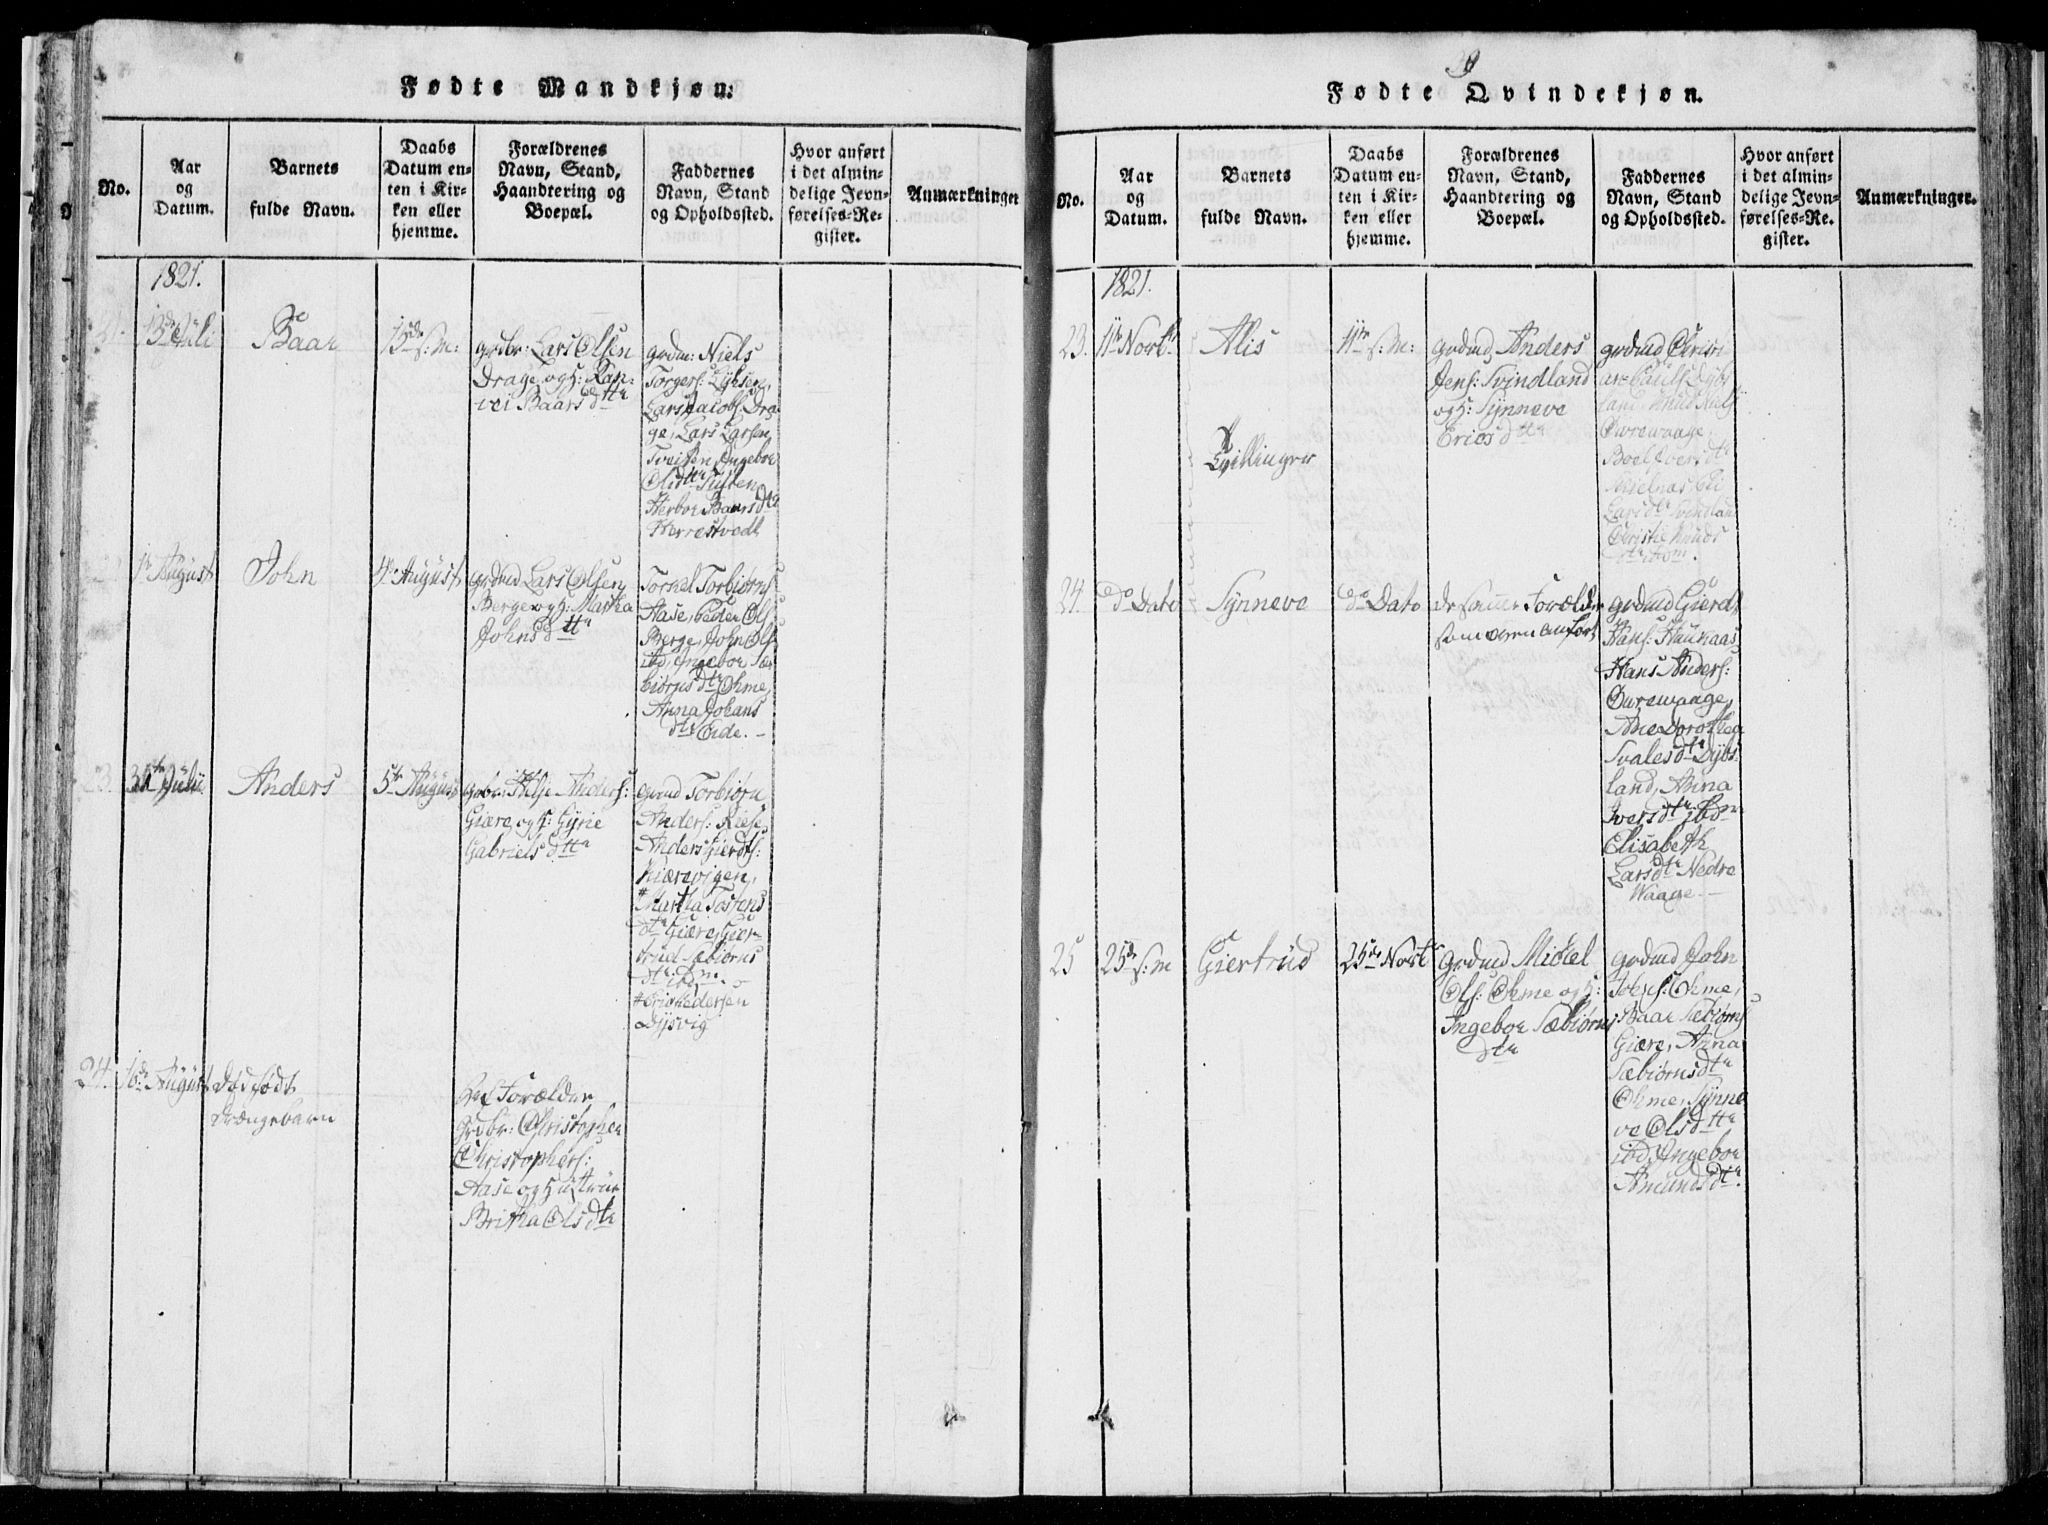 Fødte Mandkjøn.
No.
Aar
og
Datum.
Barnets
fulde Navn.
Daabs
Datum en-
ten i Kir-
ken eller
hjemme.
Forældrenes
Navn, Stand,
Haandtering og
Boepæl.
Faddernes
Navn, Stand
og Opholdssted.
Hvor anført
i det almin-
delige Jevn-
førelses-Re-
gister.
Anmærkninger
1821.
Baar
grbr: Lars Olsen
Drage og H: Ran-
vei Baarsdtr
grdm: Niels
Torgers:
Lars Jacobs: Dra-
ge, Lars Larsen
Herbor Baarsdtr
Herrestvedt
1te August
John
4de August
grdmd Lars Olsen
Berge og H: Martha
Johnsdttr
Tornel Torbiørns:
Aase, Peder Ols:
Berge, John Ols:
ibd, Ingebor Sæ-
biørnsdtr Ohme,
Anna Johans
dtr Eide.
Julii
Anders
5te August
Anders:
Giære, og H: Gyrie
Gabrielsdttr
grmd Torbiørn
Anders:
Anders Gierds:
Kiærevigen,
# Martha Tostens
dtr Giære, Gier-
trud Sæbiørns
dtr ibdm.
# Eric Pedersen
Dysvig
24.
16de August
Dødfødt
Drængebarn
Forældre
Grdbr: Christopher
Christophers:
Aase og Hustrue
Britha Olsdtr
Fødte Qvindekjøn.
No.
Aar
og
Datum.
Barnets
fulde Navn.
Daabs
Datum en-
ten i Kir-
ken eller
hjemme.
Forældrenes
Navn, Stand,
Haandtering og
Boepæl.
Faddernes
Navn, Stand
og Opholdssted.
Hvor anført
i det almin-
delige Jevn-
førelses-Re-
gister.
Anmærkninger.
1821.
23.
11te Novbr
Alis
11te s: m:
grdmd Anders
Jens: Svindland
og H: Synneve
Ericsdttr
grdmd Christi
an Pauls: Dybs
land, Knud Niels:
Øvrewaage,
Boel Iversdtr
Larsdtr Svindland
Christie Knuds
dtr ibdm.
Tvillinger
24.
do Dato
Synneve
do Dato
de samme Forældre
som oven anført
grdmd Gierdt
Hans: Haukaas
Hans Anders:
Øvrewaage,
Ane Dorothea
Svalesdtr Dybs-
land, Anna
Iversdtr ibdm
Elisabeth
Larsdtr Nedre
Waage.
25
25de s: m
Giertrud
25de Novbr
grdmd Mickel
Ols: Ohme og H:
Ingebor Sæbiørns
dtr
grdmd John
Johns: Ohme,
Baar Sæbiørns:
Giære, Anna
Sæbiørnsdtr
Ohme, Synne-
ve Olsdttr
ibd, Ingebor
Amundsdtr.